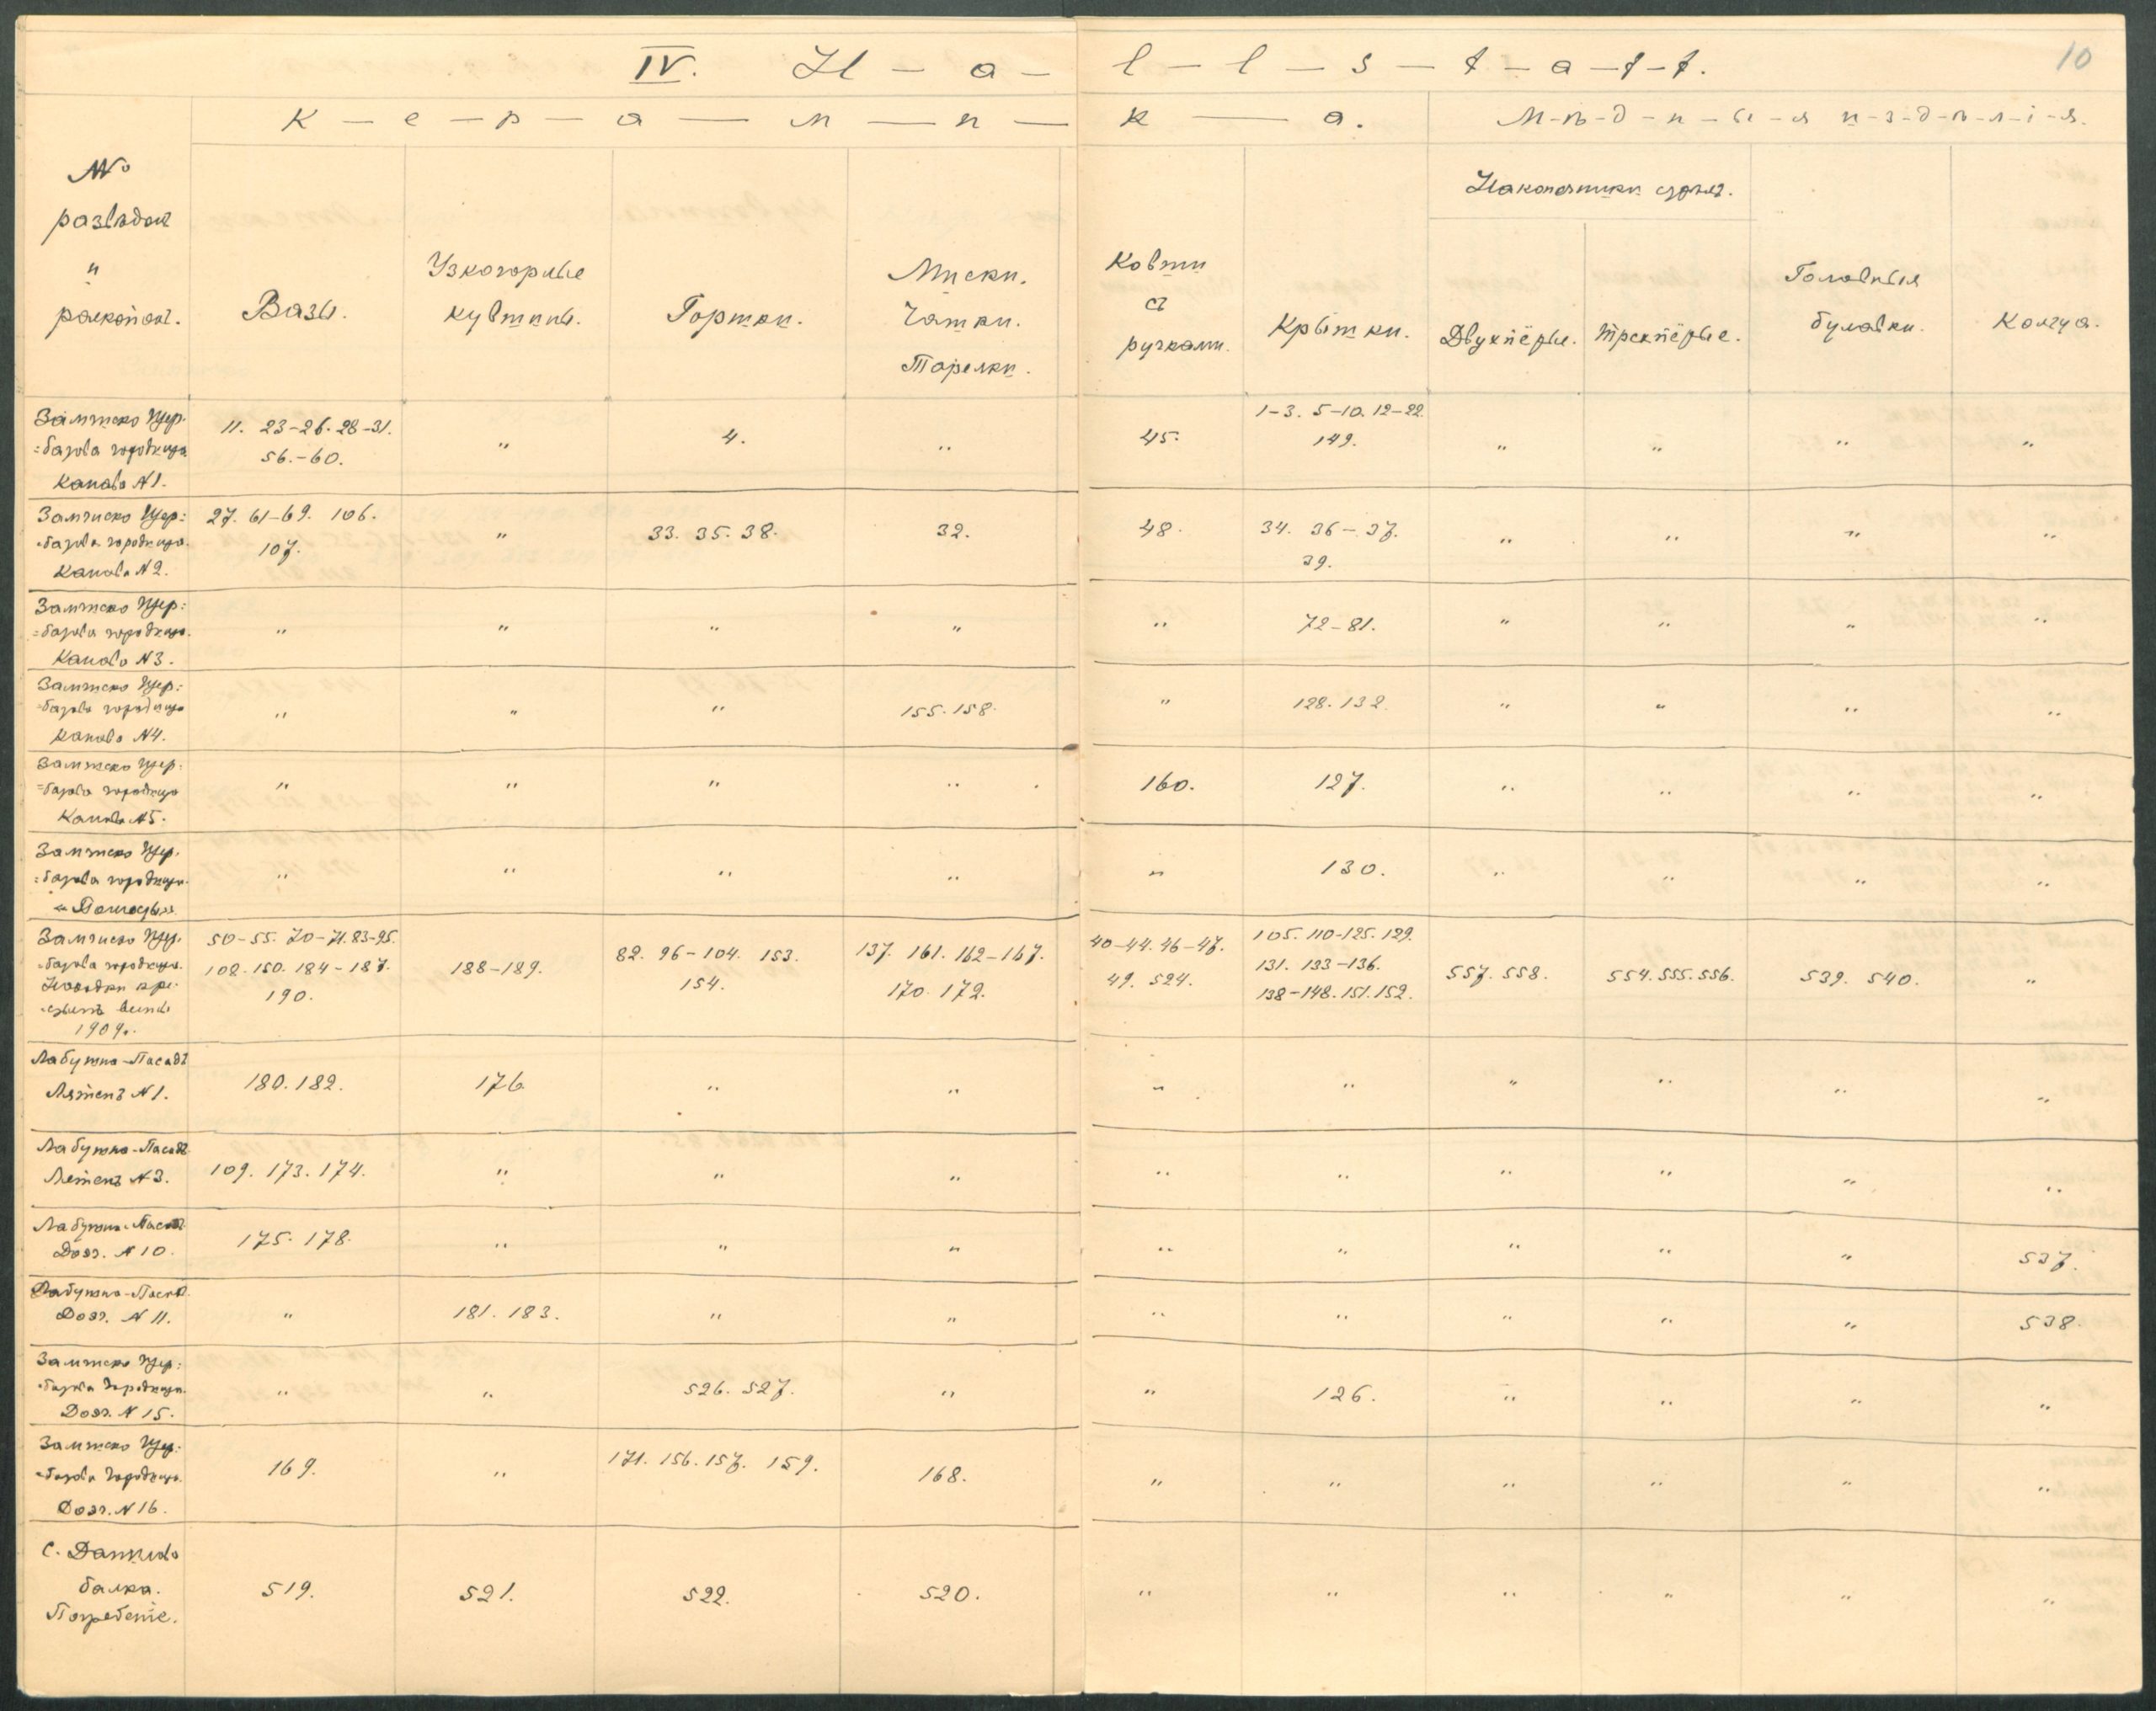 IV. H - a - l - l - s - t - a - t - t. 10
К - е - р - а - м - и - к - а. М-ѣ-д-н-ы-я и-з-д-ѣ-л-і-я.
№№
развѣдокъ
и
раскопокъ.
Вазы.
Узкогорлые
кувшины.
Горшки.
Миски.
Чашки.
Тарелки.
Ковши
съ
ручками.
Крышки.
Наконечники стрѣлъ.
Двухпёрые. Трехпёрые.
Головныя
булавки.
Кольца.
Замчиско Щер-
=базова городища
Канава №1.
11. 23-26. 28-31.
56.-60.
" 4. "
45.
1-3. 5-10. 12-22.
149.
" " " "
Замчиско Щер:
=базова городища.
Канава №2.
27. 61-69. 106.
107.
" 33. 35. 38. 32. 48.
34. 36-37.
39.
" " " "
Замчиско Щер:
=базова городища.
Канава №3.
" " " " " 72-81. " " " "
Замчиско Щер:
=базова городища
Канава №4.
" " " 155. 158. " 128. 132. " " " "
Замчиско Щер:
=базова городища
Канава №5.
" " " " 160. 127. " " " "
Замчиско Щер.
=базова городища.
" " " " " 130. " " " "
Замчиско Щер.
=базова городища.
Находки кре-
=стьянъ весны
1909г.
50-55. 70-71. 83-95.
108. 150. 184-187.
190.
188-189.
82. 96-104. 153.
154.
137. 161. 162-167.
170. 172.
40-44. 46-47.
49. 524.
105. 110-125. 129.
131. 133-136.
138-148. 151. 152.
557. 558. 554. 555. 556. 539. 540. "
Лабушна-Пасадъ
№1.
180. 182. 176. " " " " " " " "
Лабушна-Пасадъ
№3.
109. 173. 174. " " " " " " " " "
Лабушна-Пасадъ
№10.
175. 178. " " " " " " " " 537.
Лабушна-Пасадъ
№11.
" 181. 183. " " " " " " " 538.
Замчиско Щер:
=базова городища.
№15.
" " 526. 527. " " 126. " " " "
Замчиско Щер:
=базова городища.
№16.
169. " 171. 156. 157. 159. 168. " " " " " "
С. Данилова
балка.
Погребеніе.
519. 521. 522. 520. " " " " " "